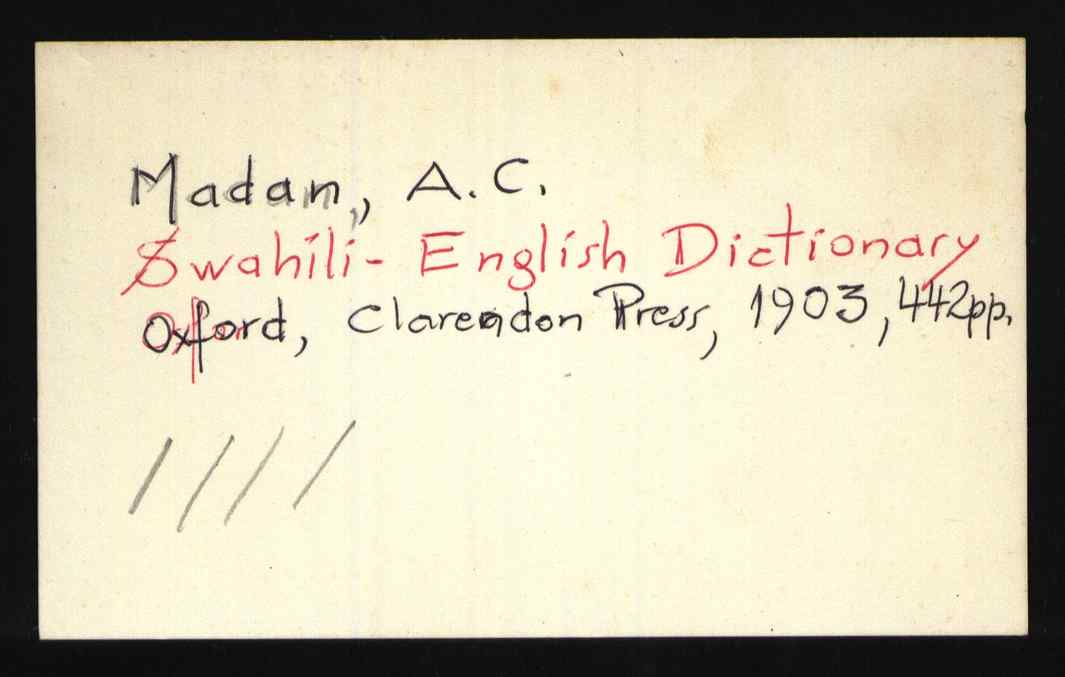 Madan, A.C.
Swahili-English Dictionary
Oxford, Clarendon Press, 1903, 442pp.
////